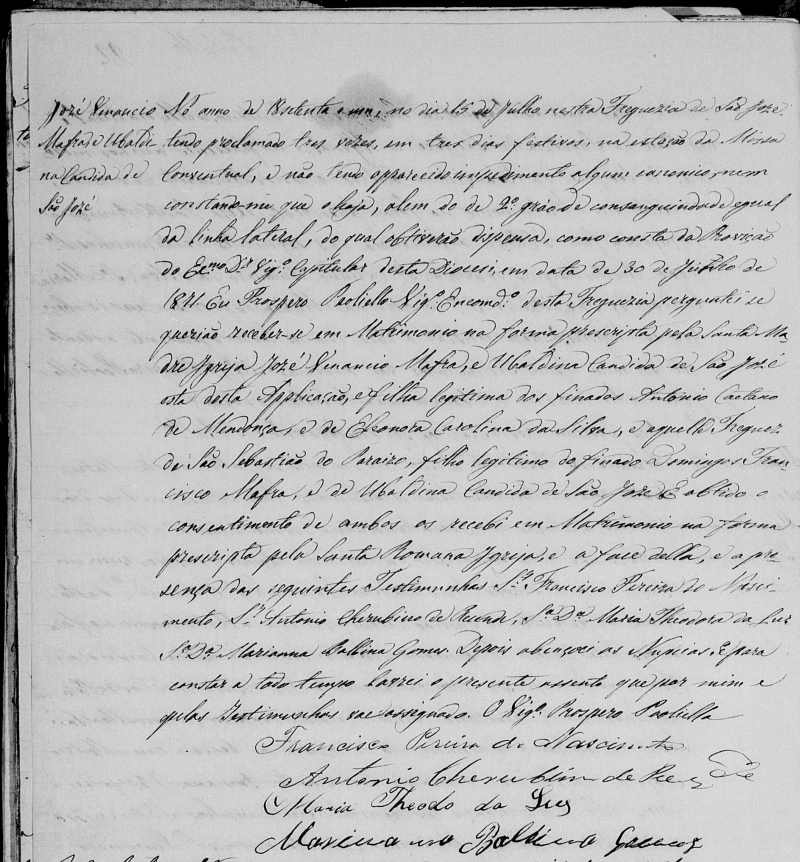 José Venancio
Mafra, e Ubaldi
na Candida de
São José
No anno de 18setenta e um, no dia 15 de Julho nestra Freguezia de São José
tendo proclamado tres vezes, em tres dias festivos, na estação da Missa
Conventual, e não tendo apparecido impedimento algum canonico, nem
constando-me que o haja, alem do de 2º gráo de consanguindade egual
da linha lateral, do qual obtiverão dispensa, como consta da Provisão
do Ecmo Dr Vigº Capitular desta Diocesi, em data de 30 de Junho de
1871. Eu Prospero Paoliello Vigº Encomdº desta Freguezia perguntei se
querião receber-se em Matrimonio na forma prescripta pela Santa Ma-
dre Igrija José Venancio Mafra, e Ubaldina Candida de São José
esta desta Applicação, e filha legitima dos finados Antonio Caetano
de Mendonça, e de Eleonora Carolina da Silva, e aquelle Freguez
de São Sebastião do Paraizo, filho legitimo do finado Domingos Fran-
cisco Mafra, e de Ubaldina Candida de São José. E obtido o
consentimento de ambos os recebi em Matrimonio na forma
prescripta pela Santa Romana Igrija, e a face della, e a pre-
sença das seguintes Testimunhas Sr. Francisco Pereira do Nasci-
mento, Sr. Antonio Cherubino de Rezende, Sra Da Maria Theodora da Luz
Sra Da Marianna Balbina Gomes. Depois abençoei as Nupcias. E para
constar a todo tempo lavrei o presente assento que por mim e
pelas Testimunhas vae assignado. O Vigº Prospero Paoliello
Francisco Pereira do Nascimto
Antonio Cherubim de Rezde
Maria Theodo da Luz
Marianna Balbina Gomes